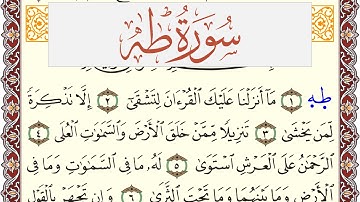 سُورَةُ طه
طه ١ مَآ أَنزَلْنَا عَلَيْكَ ٱلْقُرْءَانَ لِتَشْقَىٰٓ ٢ إِلَّا تَذْكِرَةً
لِّمَن يَخْشَىٰ ٣ تَنزِيلًا مِّمَّنْ خَلَقَ ٱلْأَرْضَ وَٱلسَّمَٰوَٰتِ ٱلْعُلَى ٤
ٱلرَّحْمَٰنُ عَلَى ٱلْعَرْشِ ٱسْتَوَىٰ ٥ لَهُۥ مَا فِى ٱلسَّمَٰوَٰتِ وَمَا فِى
ٱلْأَرْضِ وَمَا بَيْنَهُمَا وَمَا تَحْتَ ٱلثَّرَىٰ ٦ وَإِن تَجْهَرْ بِٱلْقَوْلِ